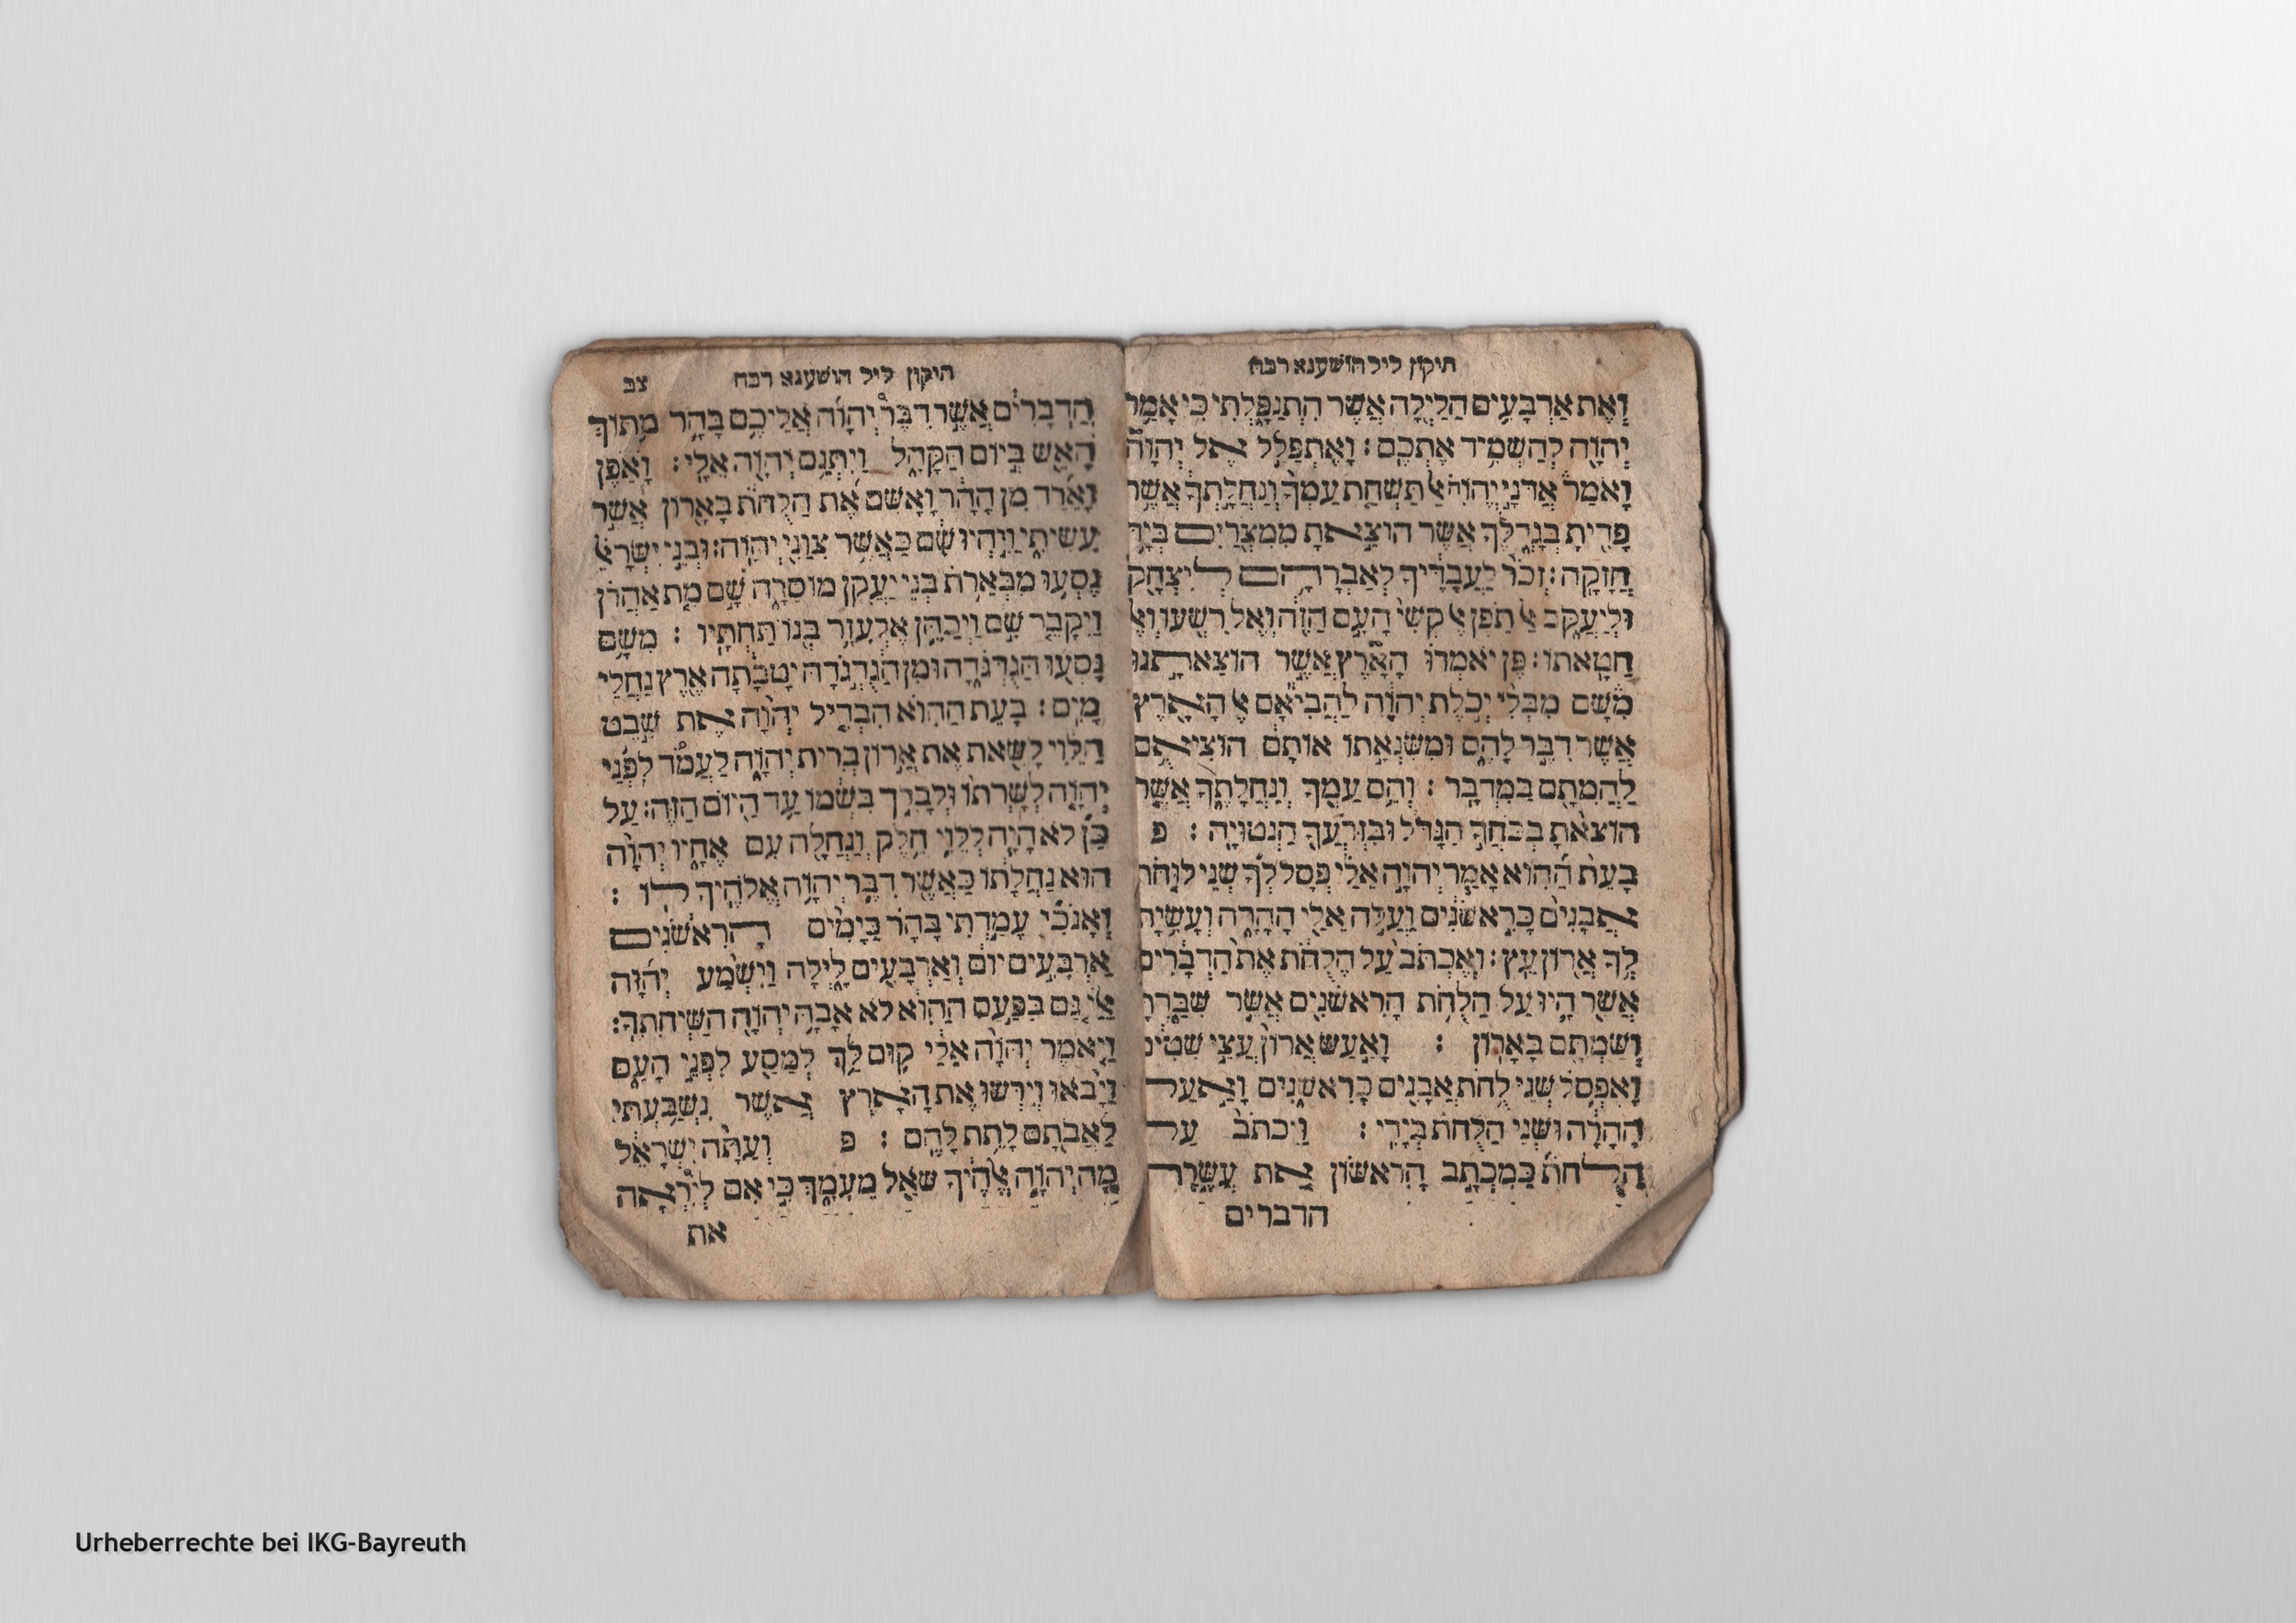 תיקון ליל הושענא רבה
וְאֶת אַרְבָּעִים הַלַּיְלָה אֲשֶׁר הִתְנַפָּלְתִּי כִּי אָמַר
יְהוָה לְהַשְׁמִיד אֶתְכֶם׃ וָאֶתְפַּלֵּל אֶל יְהוָה
וָאֹמַר אֲדֹנָי יֱהוִה אַל תַּשְׁחֵת עַמְּךָ וְנַחֲלָתְךָ אֲשֶׁר
פָּדִיתָ בְּגָדְלֶךָ אֲשֶׁר הוֹצֵאתָ מִמִּצְרַיִם בְּיָד
חֲזָקָה׃ זְכֹר לַעֲבָדֶיךָ לְאַבְרָהָם לְיִצְחָק
וּלְיַעֲקֹב אַל תֵּפֶן אֶל קְשִׁי הָעָם הַזֶּה וְאֶל רִשְׁעוֹ וְאֶל
חַטָּאתוֹ׃ פֶּן יֹאמְרוּ הָאָרֶץ אֲשֶׁר הוֹצֵאתָנוּ
מִשָּׁם מִבְּלִי יְכֹלֶת יְהוָה לַהֲבִיאָם אֶל הָאָרֶץ
אֲשֶׁר דִּבֶּר לָהֶם וּמִשִּׂנְאָתוֹ אוֹתָם הוֹצִיאָם
לַהֲמִתָם בַּמִּדְבָּר ׃ וְהֵם עַמְּךָ וְנַחֲלָתֶךָ אֲשֶׁר
הוֹצֵאתָ בְּכֹחֲךָ הַגָּדֹל וּבִזְרֹעֲךָ הַנְּטוּיָה ׃ פ
בָּעֵת הַהִוא אָמַר יְהוָה אֵלַי פְּסָל לְךָ שְׁנֵי לוּחֹת
אֲבָנִים כָּרִאשֹׁנִים וַעֲלֵה אֵלַי הָהָרָה וְעָשִׂיתָ
לְּךָ אֲרוֹן עֵץ׃ וְאֶכְתֹּב עַל הַלֻּחֹת אֶת הַדְּבָרִים
אֲשֶׁר הָיוּ עַל הַלֻּחֹת הָרִאשֹׁנִים אֲשֶׁר שִׁבַּרְתָּ
וְשַׂמְתָּם בָּאָרוֹן ׃ וָאַעַשׂ אֲרוֹן עֲצֵי שִׁטִּים
וָאֶפְסֹל שְׁנֵי לֻחֹת אֲבָנִים כָּרִאשֹׁנִים וָאַעַל
הָהָרָה וּשְׁנֵי הַלֻּחֹת בְּיָדִי ׃ וַיִּכְתֹּב עַל
הַלֻּחֹת כַּמִּכְתָּב הָרִאשׁוֹן אֵת עֲשֶׂרֶת
הדברים
תיקון ליל הושענא רבה צב
הַדְּבָרִים אֲשֶׁר דִּבֶּר יְהוָה אֲלֵיכֶם בָּהָר מִתּוֹךְ
הָאֵשׁ בְּיוֹם הַקָּהָל וַיִּתְּנֵם יְהוָה אֵלָי׃ וָאֵפֶן
וָאֵרֵד מִן הָהָר וָאָשִׂם אֶת הַלֻּחֹת בָּאָרוֹן אֲשֶׁר
עָשִׂיתִי וַיִּהְיוּ שָׁם כַּאֲשֶׁר צִוַּנִי יְהוָה׃ וּבְנֵי יִשְׂרָאֵל
נָסְעוּ מִבְּאֵרֹת בְּנֵי יַעֲקָן מוֹסֵרָה שָׁם מֵת אַהֲרֹן
וַיִּקָּבֵר שָׁם וַיְכַהֵן אֶלְעָזָר בְּנוֹ תַּחְתָּיו ׃ מִשָּׁם
נָסְעוּ הַגֻּדְגֹּדָה וּמִן הַגֻּדְגֹּדָה יָטְבָתָה אֶרֶץ נַחֲלֵי
מָיִם׃ בָּעֵת הַהִוא הִבְדִּיל יְהוָה אֶת שֵׁבֶט
הַלֵּוִי לָשֵׂאת אֶת אֲרוֹן בְּרִית יְהוָה לַעֲמֹד לִפְנֵי
יְהוָה לְשָׁרְתוֹ וּלְבָרֵךְ בִּשְׁמוֹ עַד הַיּוֹם הַזֶּה׃ עַל
כֵּן לֹא הָיָה לְלֵוִי חֵלֶק וְנַחֲלָה עִם אֶחָיו יְהוָה
הוּא נַחֲלָתוֹ כַּאֲשֶׁר דִּבֶּר יְהוָה אֱלֹהֶיךָ לוֹ ׃
וְאָנֹכִי עָמַדְתִּי בָהָר כַּיָּמִים הָרִאשֹׁנִים
אַרְבָּעִים יוֹם וְאַרְבָּעִים לָיְלָה וַיִּשְׁמַע יְהוָה
אֵלַי גַּם בַּפַּעַם הַהִוא לֹא אָבָה יְהוָה הַשְׁחִיתֶךָ׃
וַיֹּאמֶר יְהוָה אֵלַי קוּם לֵךְ לְמַסַּע לִפְנֵי הָעָם
וְיָבֹאוּ וְיִרְשׁוּ אֶת הָאָרֶץ אֲשֶׁר נִשְׁבַּעְתִּי
לַאֲבֹתָם לָתֵת לָהֶם ׃ פ וְעַתָּה יִשְׂרָאֵל
מָה יְהוָה אֱלֹהֶיךָ שֹׁאֵל מֵעִמָּךְ כִּי אִם לְיִרְאָה
את
Urheberrechte bei IKG-Bayreuth